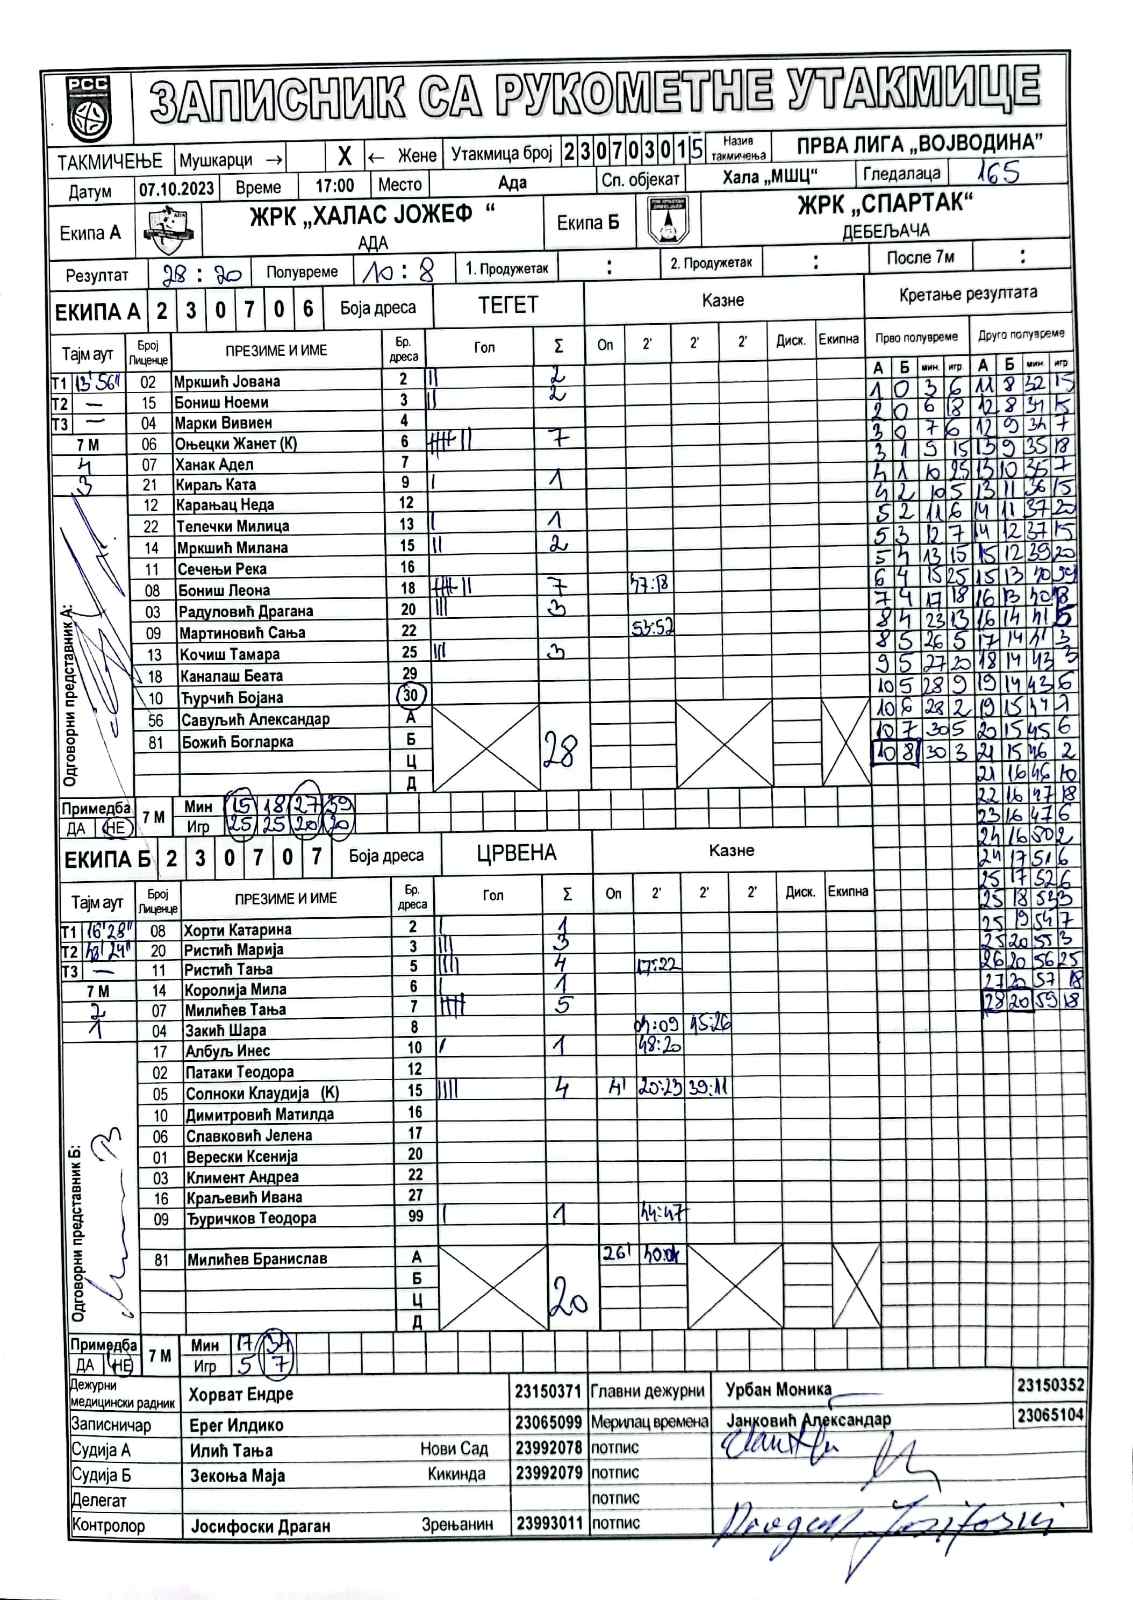 РСС
ЗАПИСНИК СА РУКОМЕТНЕ УТАКМИЦЕ
ТАКМИЧЕЊЕ Мушкарци → X ← Жене Утакмица број 2 3 0 7 0 3 0 1 5 Назив такмичења ПРВА ЛИГА „ВОЈВОДИНА”
Датум 07.10.2023 Време 17:00 Место Ада Сп. објекат Хала „МШЦ“ Гледалаца 165
Екипа А ЖРК „ХАЛАС ЈОЖЕФ “ Екипа Б ЖРК „СПАРТАК“
АДА ДЕБЕЉАЧА
Резултат 28 : 20 Полувреме 10 : 8 1. Продужетак : 2. Продужетак : После 7м :
ЕКИПА А 2 3 0 7 0 6 Боја дреса ТЕГЕТ Казне Кретање резултата
Тајм аут Број Лиценце ПРЕЗИМЕ И ИМЕ Бр. дреса Гол Σ Оп 2' 2' 2' Диск. Екипна Прво полувреме Друго полувреме
А Б мин. игр. А Б мин игр
Т1 13'56" 02 Мркшић Јована 2 || 2 1 0 3 6 11 8 32 15
Т2 — 15 Бониш Ноеми 3 || 2 2 0 6 18 12 8 31 15
Т3 — 04 Марки Вивиен 4 3 0 7 6 12 9 34 7
7 М 06 Оњецки Жанет (К) 6 7 3 1 9 15 13 9 35 18
4 07 Ханак Адел 7 4 1 10 25 13 10 36 7
3 21 Кираљ Ката 9 | 1 4 2 10 5 13 11 36 15
12 Карањац Неда 12 5 2 11 6 14 11 37 20
22 Телечки Милица 13 | 1 5 3 12 7 14 12 37 15
14 Мркшић Милана 15 || 2 5 4 13 15 15 12 39 20
11 Сечењи Река 16 6 4 15 25 15 13 40 99
08 Бониш Леона 18 7 47:18 7 4 17 18 16 13 40 18
03 Радуловић Драгана 20 ||| 3 8 4 23 13 16 14 41 5
09 Мартиновић Сања 22 53:52 8 5 26 5 17 14 41 3
13 Кочиш Тамара 25 ||| 3 9 5 27 20 18 14 43 3
18 Каналаш Беата 29 10 5 28 9 19 14 43 6
10 Ћурчић Бојана 30 10 6 28 2 19 15 44 1
56 Савуљић Александар А 10 7 30 5 20 15 45 6
81 Божић Богларка Б 28 10 8 30 3 21 15 46 2
Ц 21 16 46 10
Д 22 16 47 18
Одговорни представник А:
Примедба ДА НЕ 7 М Мин 15 18 27 39 23 16 47 6
Игр 25 25 20 20 24 16 50 2
ЕКИПА Б 2 3 0 7 0 7 Боја дреса ЦРВЕНА Казне 24 17 51 6
25 17 52 6
Тајм аут Број Лиценце ПРЕЗИМЕ И ИМЕ Бр. дреса Гол Σ Оп 2' 2' 2' Диск. Екипна 25 18 53 3
Т1 16'28" 08 Хорти Катарина 2 | 1 25 19 54 7
Т2 43'24" 20 Ристић Марија 3 ||| 3 25 20 55 3
Т3 — 11 Ристић Тања 5 |||| 4 17:22 26 20 56 25
7 М 14 Королија Мила 6 | 1 27 20 57 18
2 07 Милићев Тања 7 5 28 20 59 18
1 04 Закић Шара 8 04:09 45:26
17 Албуљ Инес 10 | 1 48:20
02 Патаки Теодора 12
05 Солноки Клаудија (К) 15 |||| 4 4' 20:23 39:11
10 Димитровић Матилда 16
06 Славковић Јелена 17
01 Верески Ксенија 20
03 Климент Андреа 22
16 Краљевић Ивана 27
09 Ђуричков Теодора 99 | 1 44:47
81 Милићев Бранислав А 26' 40:04
Б
Ц 20
Д
Одговорни представник Б:
Примедба ДА НЕ 7 М Мин 17 34
Игр 5 7
Дежурни медицински радник Хорват Ендре 23150371 Главни дежурни Урбан Моника 23150352
Записничар Ерег Илдико 23065099 Мерилац времена Јанковић Александар 23065104
Судија А Илић Тања Нови Сад 23992078 потпис
Судија Б Зекоња Маја Кикинда 23992079 потпис
Делегат потпис
Контролор Јосифоски Драган Зрењанин 23993011 потпис